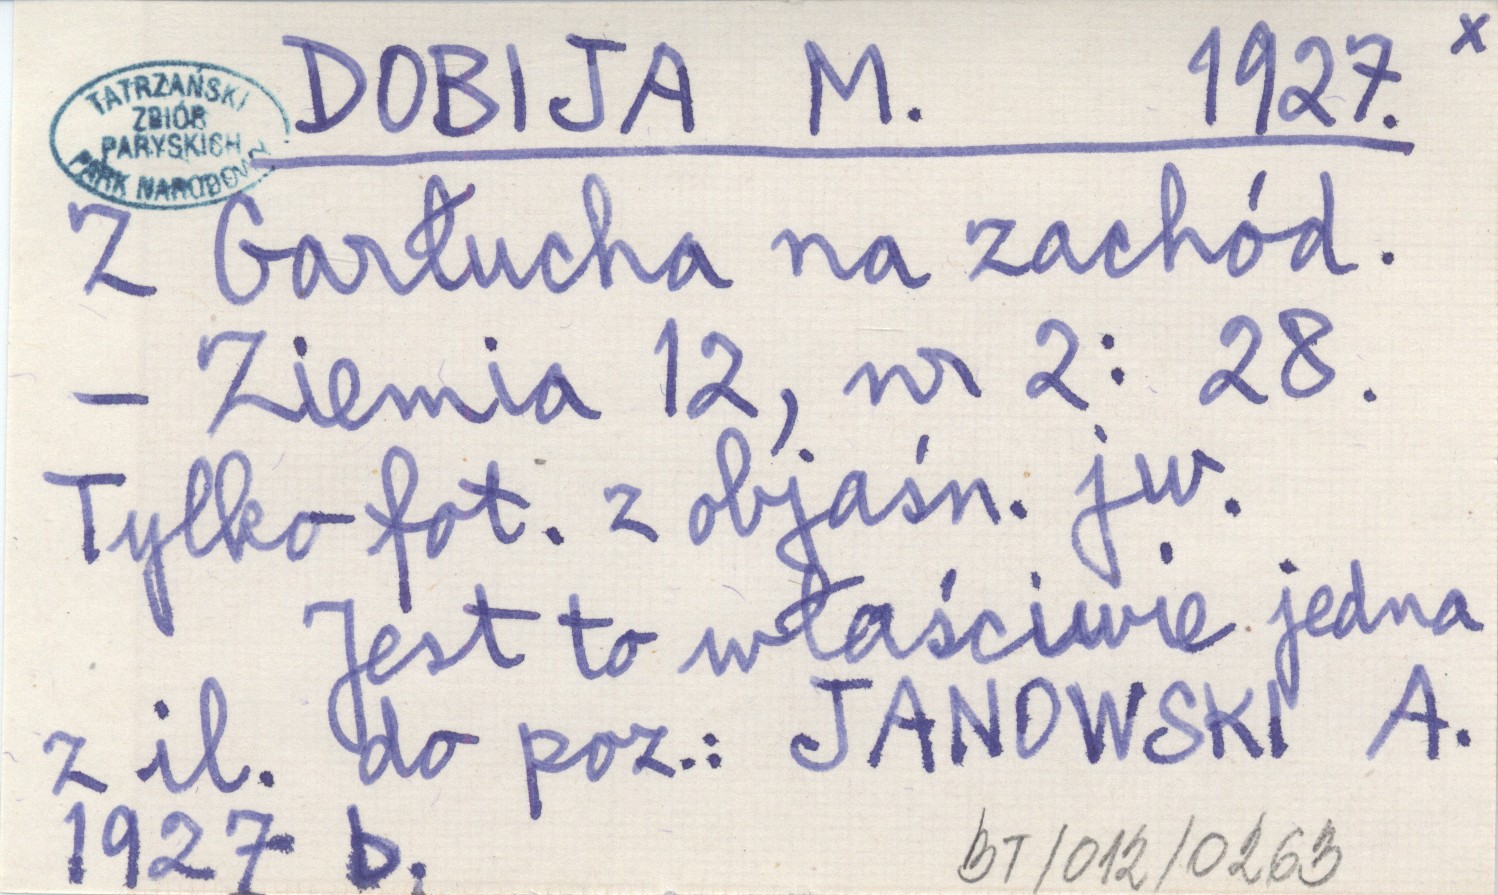 DOBIJA M. 1927. x
TATRZAŃSKI
ZBIÓR
PARYSKICH
PARK NARODOWY
Z Garłucha na zachód.
– Ziemia 12, nr 2: 28.
Tylko fot. z objaśn. jw.
Jest to właściwie jedna
z il. do poz.: JANOWSKI A.
1927 b.
BT/012/0263